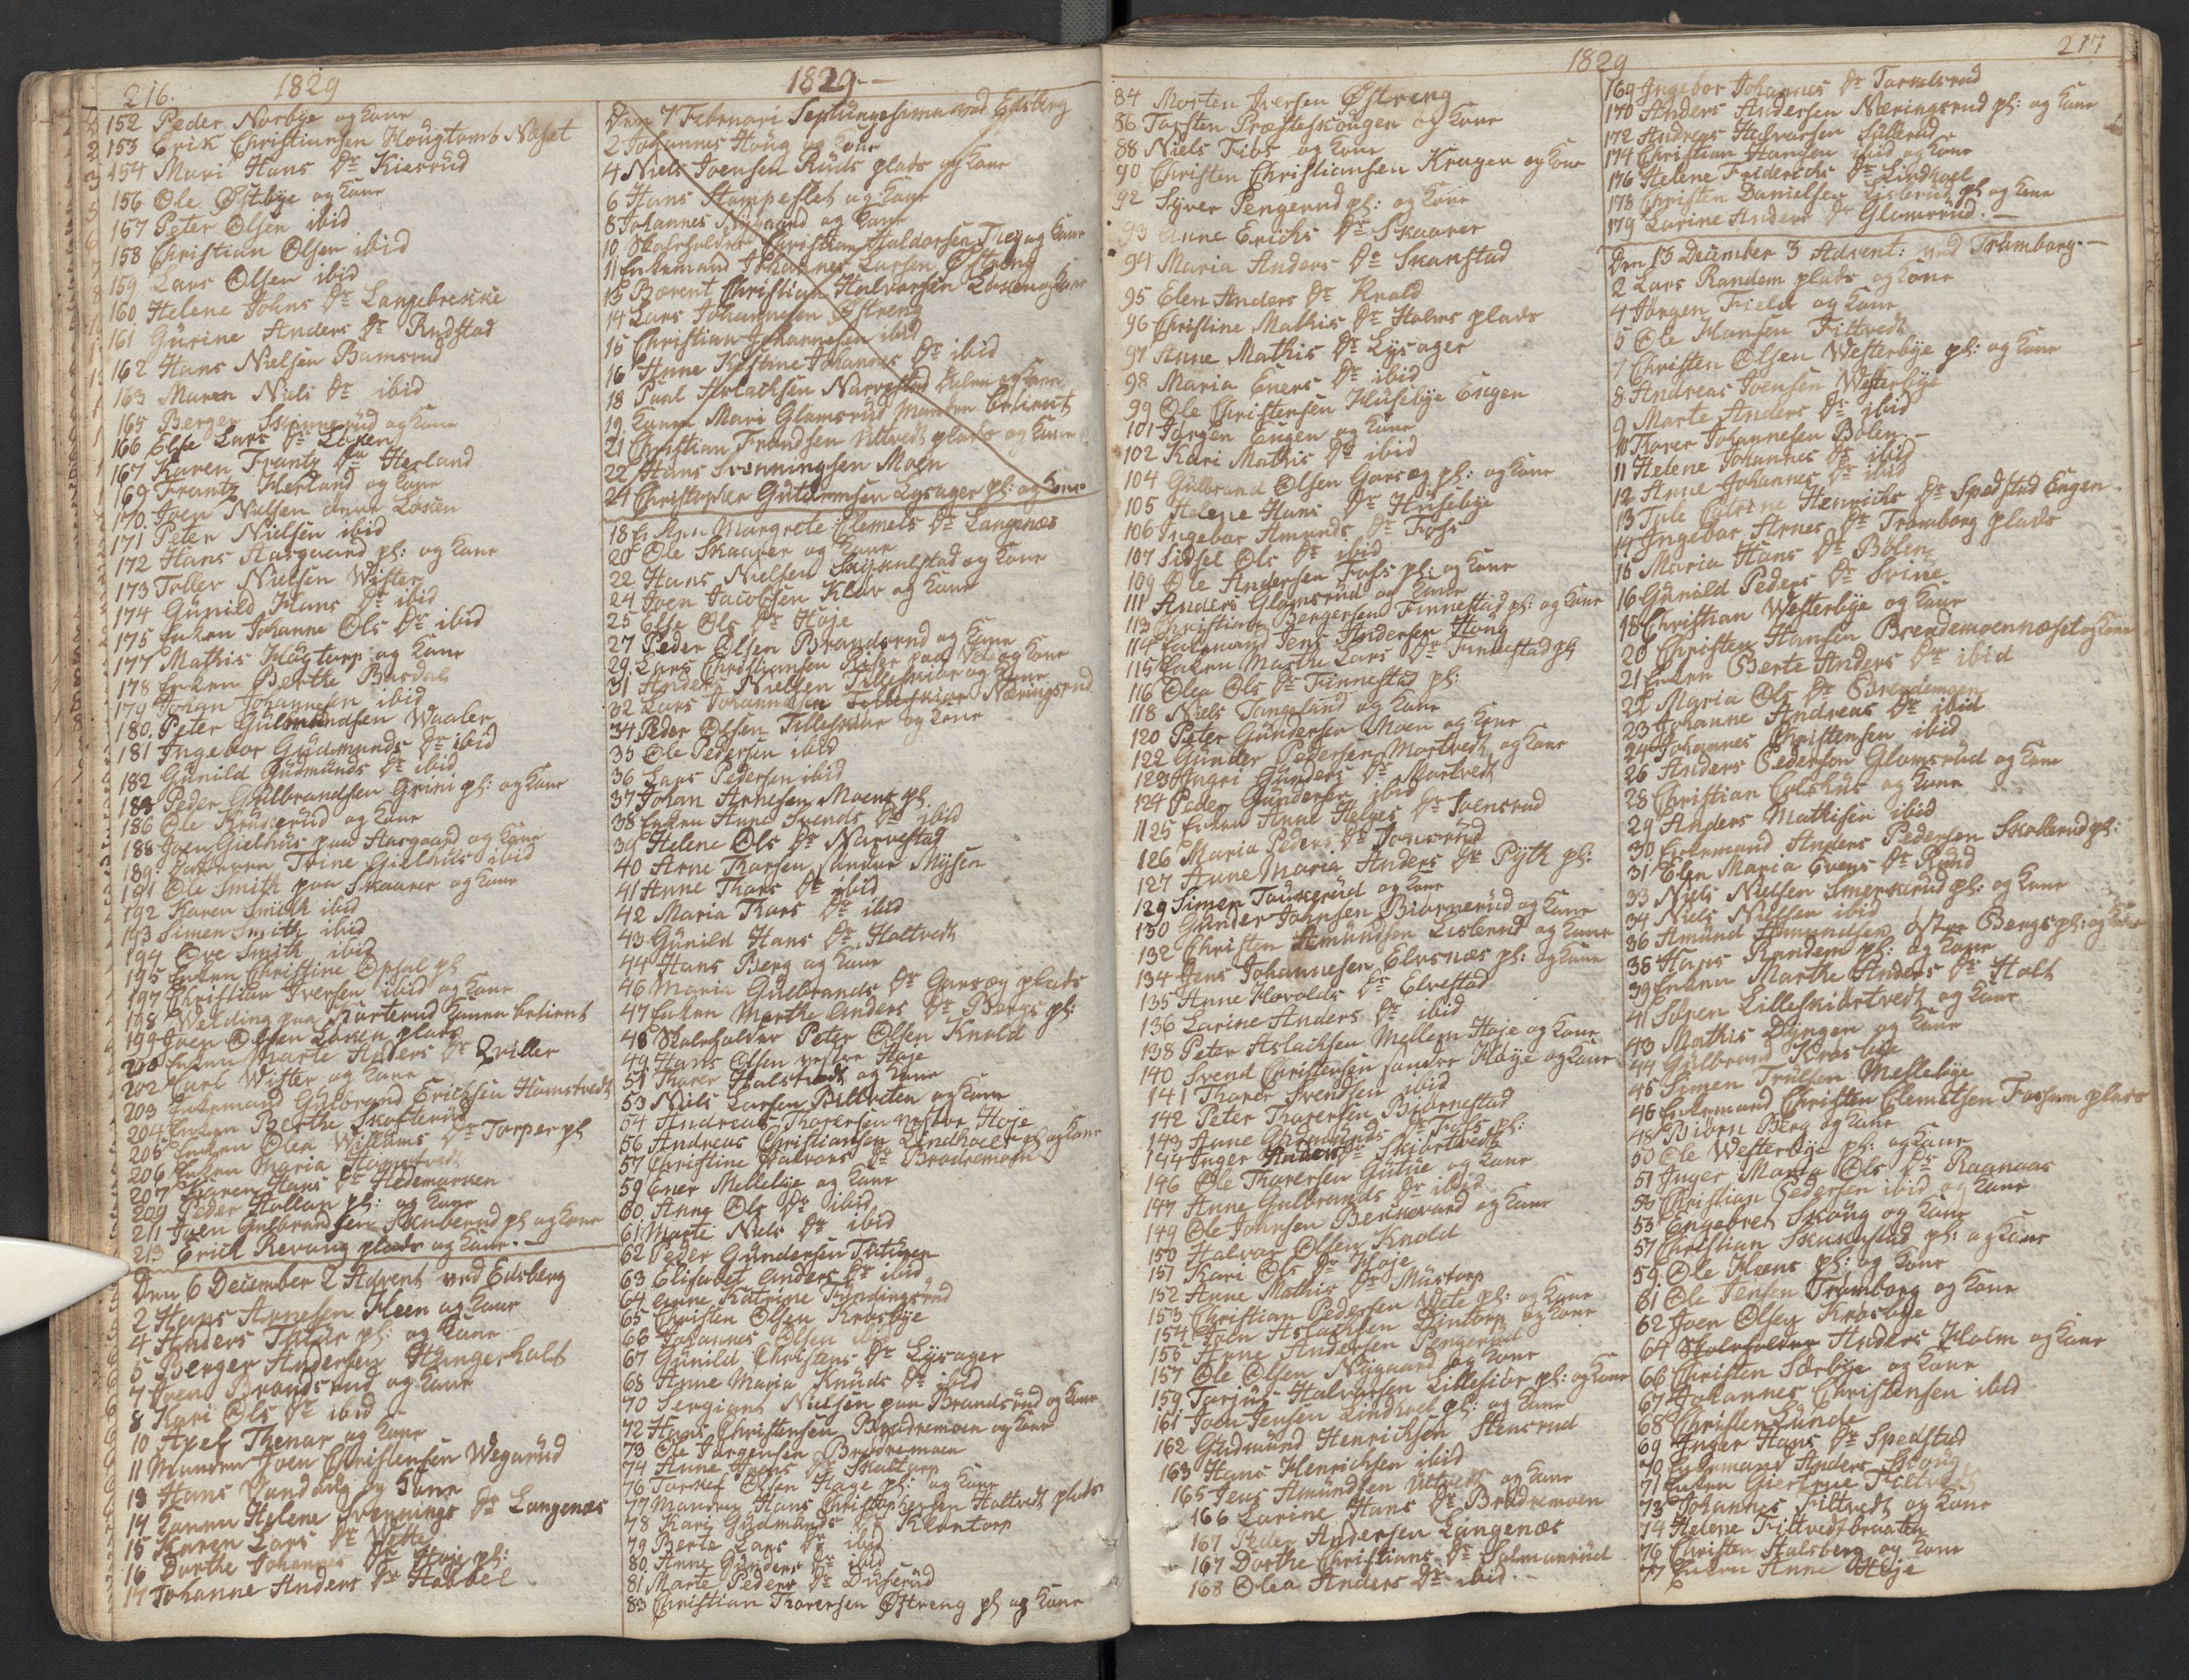 216.
1829
152 Peder Norbye og Kone
153 Erik Christiansen Hougtomt Næset
154 Mari Hans Dr Kiserüd
156 Ole Østbye og Kone
157 Peter Olsen ibid
158 Christian Olsen ibid
159 Lars Olsen ibid
160 Helene Johns Dr Langebrekke
161 Gurine Anders Dr Rudstad
162 Hans Nielsen Bamsrud
163 Maren Niels Dr ibid
165 Berger Skinnerüd og Kone
166 Else Lars Dr Løken
167 Karen Frantz Dr Herland
169 Frantz Herland og Kone
170 Joen Nielsen Løken
171 Peter Nielsen ibid
172 Hans Aasgaard pl: og Kone
173 Toller Nielsen Wister
174 Günild Hans Dr ibid
175 Enken Johanne Ols Dr ibid
177 Mathis Hügtorp og Kone
178 Enken Berthe Busdal
179 Johan Johannesen ibid
180 Peter Gulmundsen Waaler
181 Ingebor Gudmunds Dr ibid
182 Günild Gudmunds Dr ibid
188 Peder Gulbrandsen Grini pl: og Kone
186 Ole Krükerüd og Kone
188 Joen Gielhus paa Aasgaard og Kone
189 Trine Gielhus ibid
191 Ole Smith paa Skaarer og Kone
192 Karen Smith ibid
193 Simen Smith ibid
194 Ove Smith ibid
195 Enken Christine Opsal pl
197 Christian Iversen ibid og Kone
198 Welding paa Kanen betient
199 Joen Olsen Løken plads
200 Enken Marte Anders Dr Qviller
202 Carl Wister og Kone
203 Enkemand Gulbrand Erichsen Hamstvedt
204 Enken Berthe Skofterüd
205 Enken Olea Willums Dr Torper pl
206 Enken Maria Hamstvedt
207 Karen Hans Dr Hedemarken
209 Peder Hallan pl: og Kone
211 Joen Gulbrandsen Skuberud pl og Kone
213 Erich Revaug plads og Kone.-
Den 6 December 2 Advent ved Edsberg
2 Hans Arnesen Heen og Kone
4 Anders Tütür pl: og Kone
5 Berger Andersen Hungerholt
7 Joen Brandsrud og Kone
8 Kari Ols Dr ibid
10 Axel Thenar og Kone
11 Manden Joen Christensen Wegarüd
13 Hans og Kone
14 Konen Helene Svennings Dr Langenæs
15 Karen Lars Dr Wister
16 Dorthe Johannes Dr Høje pl:
17 Johanne Anders Dr Habbel
1829
Den 7 Februari Septuagesima ved Edsberg
2 Johannes Houg og Kone
4 Niels Joensen Ruds plads og Kone
6 Hans Stompeflet og Kone
8 Johannes Nygaard og Kone
10 Skoleholder Christian Haldorsen Treg og Kone
11 Enkemand Johannes Larsen Østreng
13 Bærent Christian Halvorsen Løken og Kone
14 Lars Johannesen Østreng
15 Christian Johannesen ibid
16 Anne Kirstine Johannes Dr ibid
18 Paul Aslachsen Narvestad og Kone
19 Konen Mari Glamsrüd Manden betient
21 Christian Frandsen Ultvedt plads og Kone
22 Hans Svenningsen Moen
24 Christopher Gutormsen Lysager pl: og Kone
18 E: Ann Margrete Clemets Dr Langenæs
20 Ole Skaarer og Kone
22 Hans Nielsen Skjkulstad og Kone
24 Joen Jacobsen Kløv og Kone
25 Else Ols Dr Høje
27 Peder Olsen Brandsrud og Kone
29 Lars Christiansen Riser paa og Kone
31 Anders Nielsen Tilleskiar og Kone
32 Lars Johannesen Tilleskiar Næringsrud
34 Peder Olsen Tilleskiar og Kone
35 Ole Pedersen ibid
36 Lars Pedersen ibid
37 Johan Arnesen Moens pl.
38 Enken Anne Svends Dr ibid
39 Helene Ols Dr Narvestad
40 Arne Thorsen søndre Mysen
41 Anne Thors Dr ibid
42 Maria Thors Dr ibid
43 Günild Hans Dr Haltvedt
44 Hans Berg og Kone
46 Maria Gulbrands Dr Garseg plads
47 Enken Marthe Anders Dr Bergs pl:
48 Skoleholder Peter Olsen Knold
49 Hans Olsen vestre Høje
51 Thorer Halstvedt og Kone
53 Niels Larsen Biltviten og Kone
54 Andreas Thoresen vestre Høje
56 Andreas Christiansen Lindhoel pl og Kone
57 Christine Halvors Dr Brødremoen
59 Ener Mellebye og Kone
60 Anne Ols Dr ibid
61 Marte Niels Dr ibid
62 Peder Gundersen Tütüren
63 Elisabet Anders Dr ibid
64 Anne Katrine Fundingsrud
65 Christen Olsen Krosbye
66 Johannes Olsen ibid
67 Günild Christens Dr Lysager
68 Anne Maria Knuds Dr ibid
70 Sergiant Nielsen paa Brandsrüd og Kone
72 Hans Christensen Brødremoen og Kone
73 Ole Jørgensen Brødremoen
74 Anne Hans Dr Skoltorp
76 Torkel Olsen Hage pl: og Kone
77 Manden Hans Christophersen Haltvedt plads
78 Kari Gudmunds Dr Klontorp
79 Berte Lars Dr ibid
80 Anne Gunders Dr ibid
81 Marte Peders Dr Duserüd
83 Christian Thoresen Østreng pl og Kone
217
1829
84 Morten Iversen Østreng
86 Torsten Præsteskougen og Kone
88 Niels Trios og Kone
90 Christen Christiansen Kragen og Kone
92 Syver Pengerud pl: og Kone
93 Anne Erichs Dr Skaarer
94 Maria Anders Dr Skanstad
95 Elen Anders Dr Knold
96 Christine Mathis Dr Holms plads
97 Anne Mathis Dr Lysager
98 Maria Eners Dr ibid
99 Ole Christensen Husebye Engen
101 Jørgen Engen og Kone
102 Kari Mathis Dr ibid
104 Gulbrand Olsen Garseg pl: og Kone
105 Helene Hans Dr Husebye
106 Ingebor Amunds Dr Foss
107 Sidsel Ols Dr ibid
109 Ole Andersen Foss pl: og Kone
111 Anders Glamsrüd og Kone
113 Christian Bergersen Finnestad pl: og Kone
114 Enkemand Jens Andersen Houg
115 Enken Marthe Lars Dr Finnestad pl
116 Olea Ols Dr Finnestad pl:
118 Niels Tangeland og Kone
120 Peter Gundersen Moen og Kone
122 Gunder Pedersen Mortvedt og Kone
123 Angri Gunders Dr Mortvedt
124 Peder Gundersen ibid
1125 Enken Anne Helges Dr Svensrud
126 Maria Peders Dr Tosensrüd
127 Anne Maria Anders Dr Pyth pl:
129 Simen Taükerüd og Kone
130 Gunder Johnsen Biørnerüd og Kone
132 Christen Amundsen Lislerud og Kone
134 Jens Johannesen Elvsnæs pl: og Kone
135 Anne Hovolds Dr Elvestad
136 Larine Anders Dr ibid
138 Peter Aslachsen Mellem Høje og Kone
140 Svend Christensen søndre Høye og Kone
141 Thorer Svendsen ibid
142 Peter Thoresen Biørnestad
143 Anne Gudmunds Dr Foss pl:
144 Inger Anders Dr Skjørtvedt
146 Ole Thoresen Gutue og Kone
147 Anne Gulbrands Dr ibid
149 Ole Johnsen Bekkevard og Kone
150 Halvor Olsen Knold
151 Kari Ols Dr Høje
152 Anne Mathis Dr Müstorp
153 Christian Pedersen Wete pl: og Kone
154 Joen Aslachsen Dintorp og Kone
155 Anne Andersen Pengerud
157 Ole Olsen Nygaard og Kone
159 Torjus Halvorsen Lillesiør pl: og Kone
161 Joen Jensen Lindhoel pl: og Kone
162 Gudmund Henrichsen Stensrud
163 Hans Henrichsen ibid
165 Jens Amundsen Ultvedt og Kone
166 Larine Hans Dr Brødremoen
167 Peder Andersen Langenæs
167 Dorthe Christians Dr Salmonrüd
168 Olea Anders Dr ibid
169 Ingebor Johannes Dr Tormelsrud
170 Anders Andersen Næringsrud pl: og Kone
172 Andreas Halvorsen Süllerud
174 Christian Hansen ibid og Kone
176 Helene Friderichs Dr Lindhoel
178 Christen Danielsen Lislerud pl og Kone
179 Larine Anders Dr Glamsrüd.-
Den 13 December 3 Advent: ved Trømborg.-
2 Lars Randem plads og Kone
4 Jørgen Field og Kone
5 Ole Hansen Filtvedt
7 Christen Olsen Westerbye pl: og Kone
8 Andreas Joensen Westerbye
9 Marte Anders Dr ibid
10 Thorer Johannesen Bølen.-
11 Helene Johannes Dr ibid
12 Anne Johannes Dr ibid
13 Catrine Henrichs Dr Spedstad Engen
14 Ingebor Arnes Dr Trømborg plads
15 Maria Hans Dr Bølen
16 Günild Peders Dr Svine
18 Christian Westerbye og Kone
20 Christen Hansen Brendemoennæset og Kone
21 Enken Berte Anders Dr ibid
22 Maria Ols Dr Brendemoen
23 Johanne Andreas Dr ibid
24 Johannes Christensen ibid
26 Anders Pederson Glamsrüd og Kone
28 Christian Colshus og Kone
29 Anders Mathisen ibid
30 Enkemand Anders Pedersen Skollerud pl:
31 Elen Maria Evens Dr Rüud
33 Niels Nielsen Smerkerüd pl: og Kone
34 Niels Nielsen ibid
36 Amund Amundsen østre Bergs pl: og Kone
38 Hans Randem pl: og Kone
39 Enken Marthe Anders Dr Holt
41 Søren Lilleskiørtvedt og Kone
43 Mathis Dyngen og Kone
44 Gulbrand Krosbye
45 Simen Trulsen Mellebye
46 Enkemand Christen Clemetsen Fossum plads
48 Biørn Berg og Kone
50 Ole Westerbye pl: og Kone
51 Inger Maria Ols Dr Raanaas
53 Christian Pedersen ibid og Kone
55 Engebret Skoug og Kone
57 Christian Skukestad pl: og Kone
59 Ole Heens pl: og Kone
61 Ole Jensen Trømborg og Kone
62 Joen Olsen Krosbye
64 Skoleholder Anders Holm og Kone
66 Christen Sørbye og Kone
67 Johannes Christensen ibid
68 Christen Lunde
69 Inger Hans Dr Spedstad
70 Enkemand Anders Skoug
71 Enken Giertrue Filtvedt
73 Johannes Filtvedt og Kone
74 Helene Filtvedtbraaten
76 Christen Halsberg og Kone
77 Enken Anne Helje